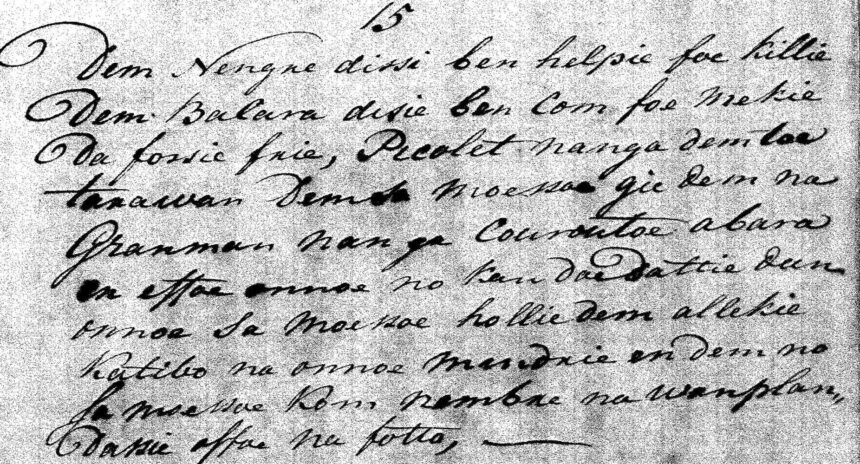 15
Dem Nengre dissi ben helpie foe killie
Dem Balara disie ben Com foe mekie
Da forsie frie, Picolet nanga dem toe
tarawan Dem Sa moessoe gie dem na
Granman nanga Couroutoe abara
en effoe onnoe no kan doe dattie dan
onnoe Sa moessoe hollie dem allekie
Katibo na onnoe mindrie en dem no
Sa moessoe kom nembre na wanplan„
Dasie offoe na fotto,